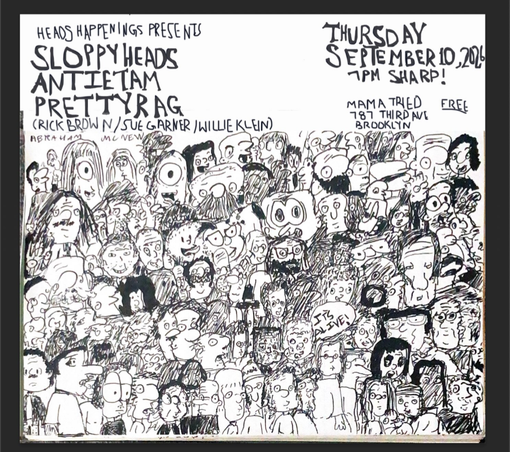 HEADS HAPPENINGS PRESENTS
SLOPPYHEADS
ANTIETAM
PRETTYRAG
(RICK BROWN/SUE GARNER/WILLIE KLEIN)
THURSDAY
SEPTEMBER 10, 2026
7PM SHARP!
MAMA TRIED FREE
787 THIRD AVE
BROOKLYN
ABRAHAM MCNEW
IT'S
ALIVE!